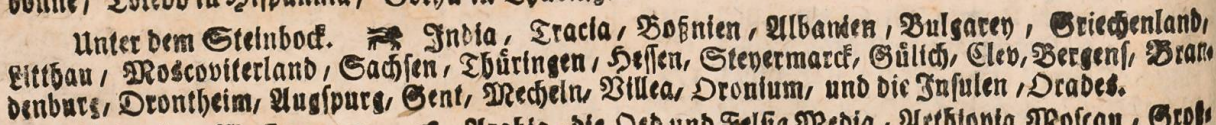 Unter dem Steinbock. India, Tracia, Boßnien, Albanien, Bulgarey, Griechenland,
Litthau, Moscoviterland, Sachsen, Thüringen, Hessen, Steyermarck, Gülich, Clev, Bergens, Bran-
denburg, Drontheim, Augspurg, Gent, Mecheln, Villea, Oronium, und die Insulen, Orades.
die Oed und Felsig Media, Aethiopia Moscau, Groß-